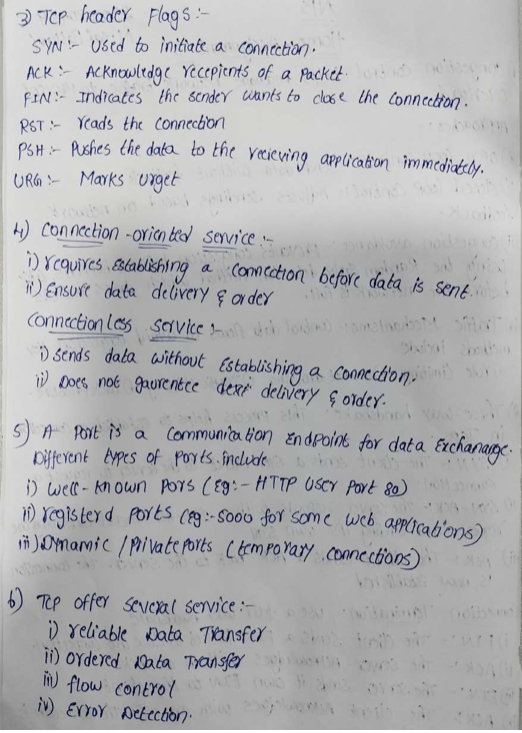 3) TCP header Flags:-
SYN:- Used to initiate a connection.
ACK:- Acknowledge recepients of a packet.
FIN:- Indicates the sender wants to close the connection.
RST:- reads the connection
PSH:- Pushes the data to the recieving application immediately.
URG:- Marks urget
4) connection-oriented service:-
i) requires establishing a connection before data is sent.
ii) Ensure data delivery & order
Connectionless service:-
i) sends data without Establishing a connection.
ii) Does not gaurentee delivery & order.
5) A Port is a communication Endpoint for data Exchanange.
Different types of ports include
i) well-known pors (eg:- HTTP User Port 80)
ii) registerd ports (eg:-5000 for some web applications)
iii) Dynamic / Private ports (temporary connections)
6) TCP offer several service:-
i) reliable Data Transfer
ii) ordered Data Transfer
iii) flow control
iv) Error Detection.